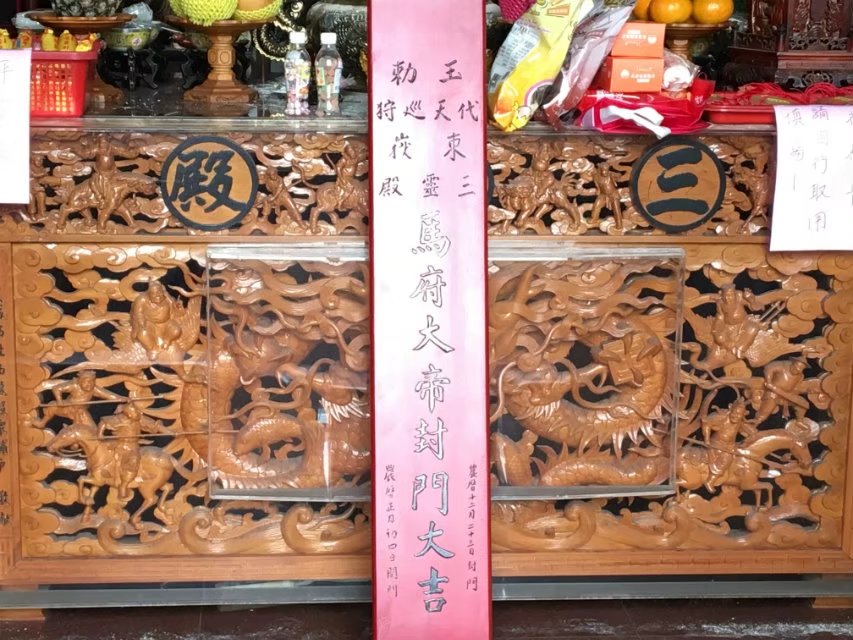 玉勅
代天巡狩
東嶽
三靈殿
馬府大帝封門大吉
農曆十二月二十三日封門
農曆正月初四日開門
三
殿
請自行取用
平